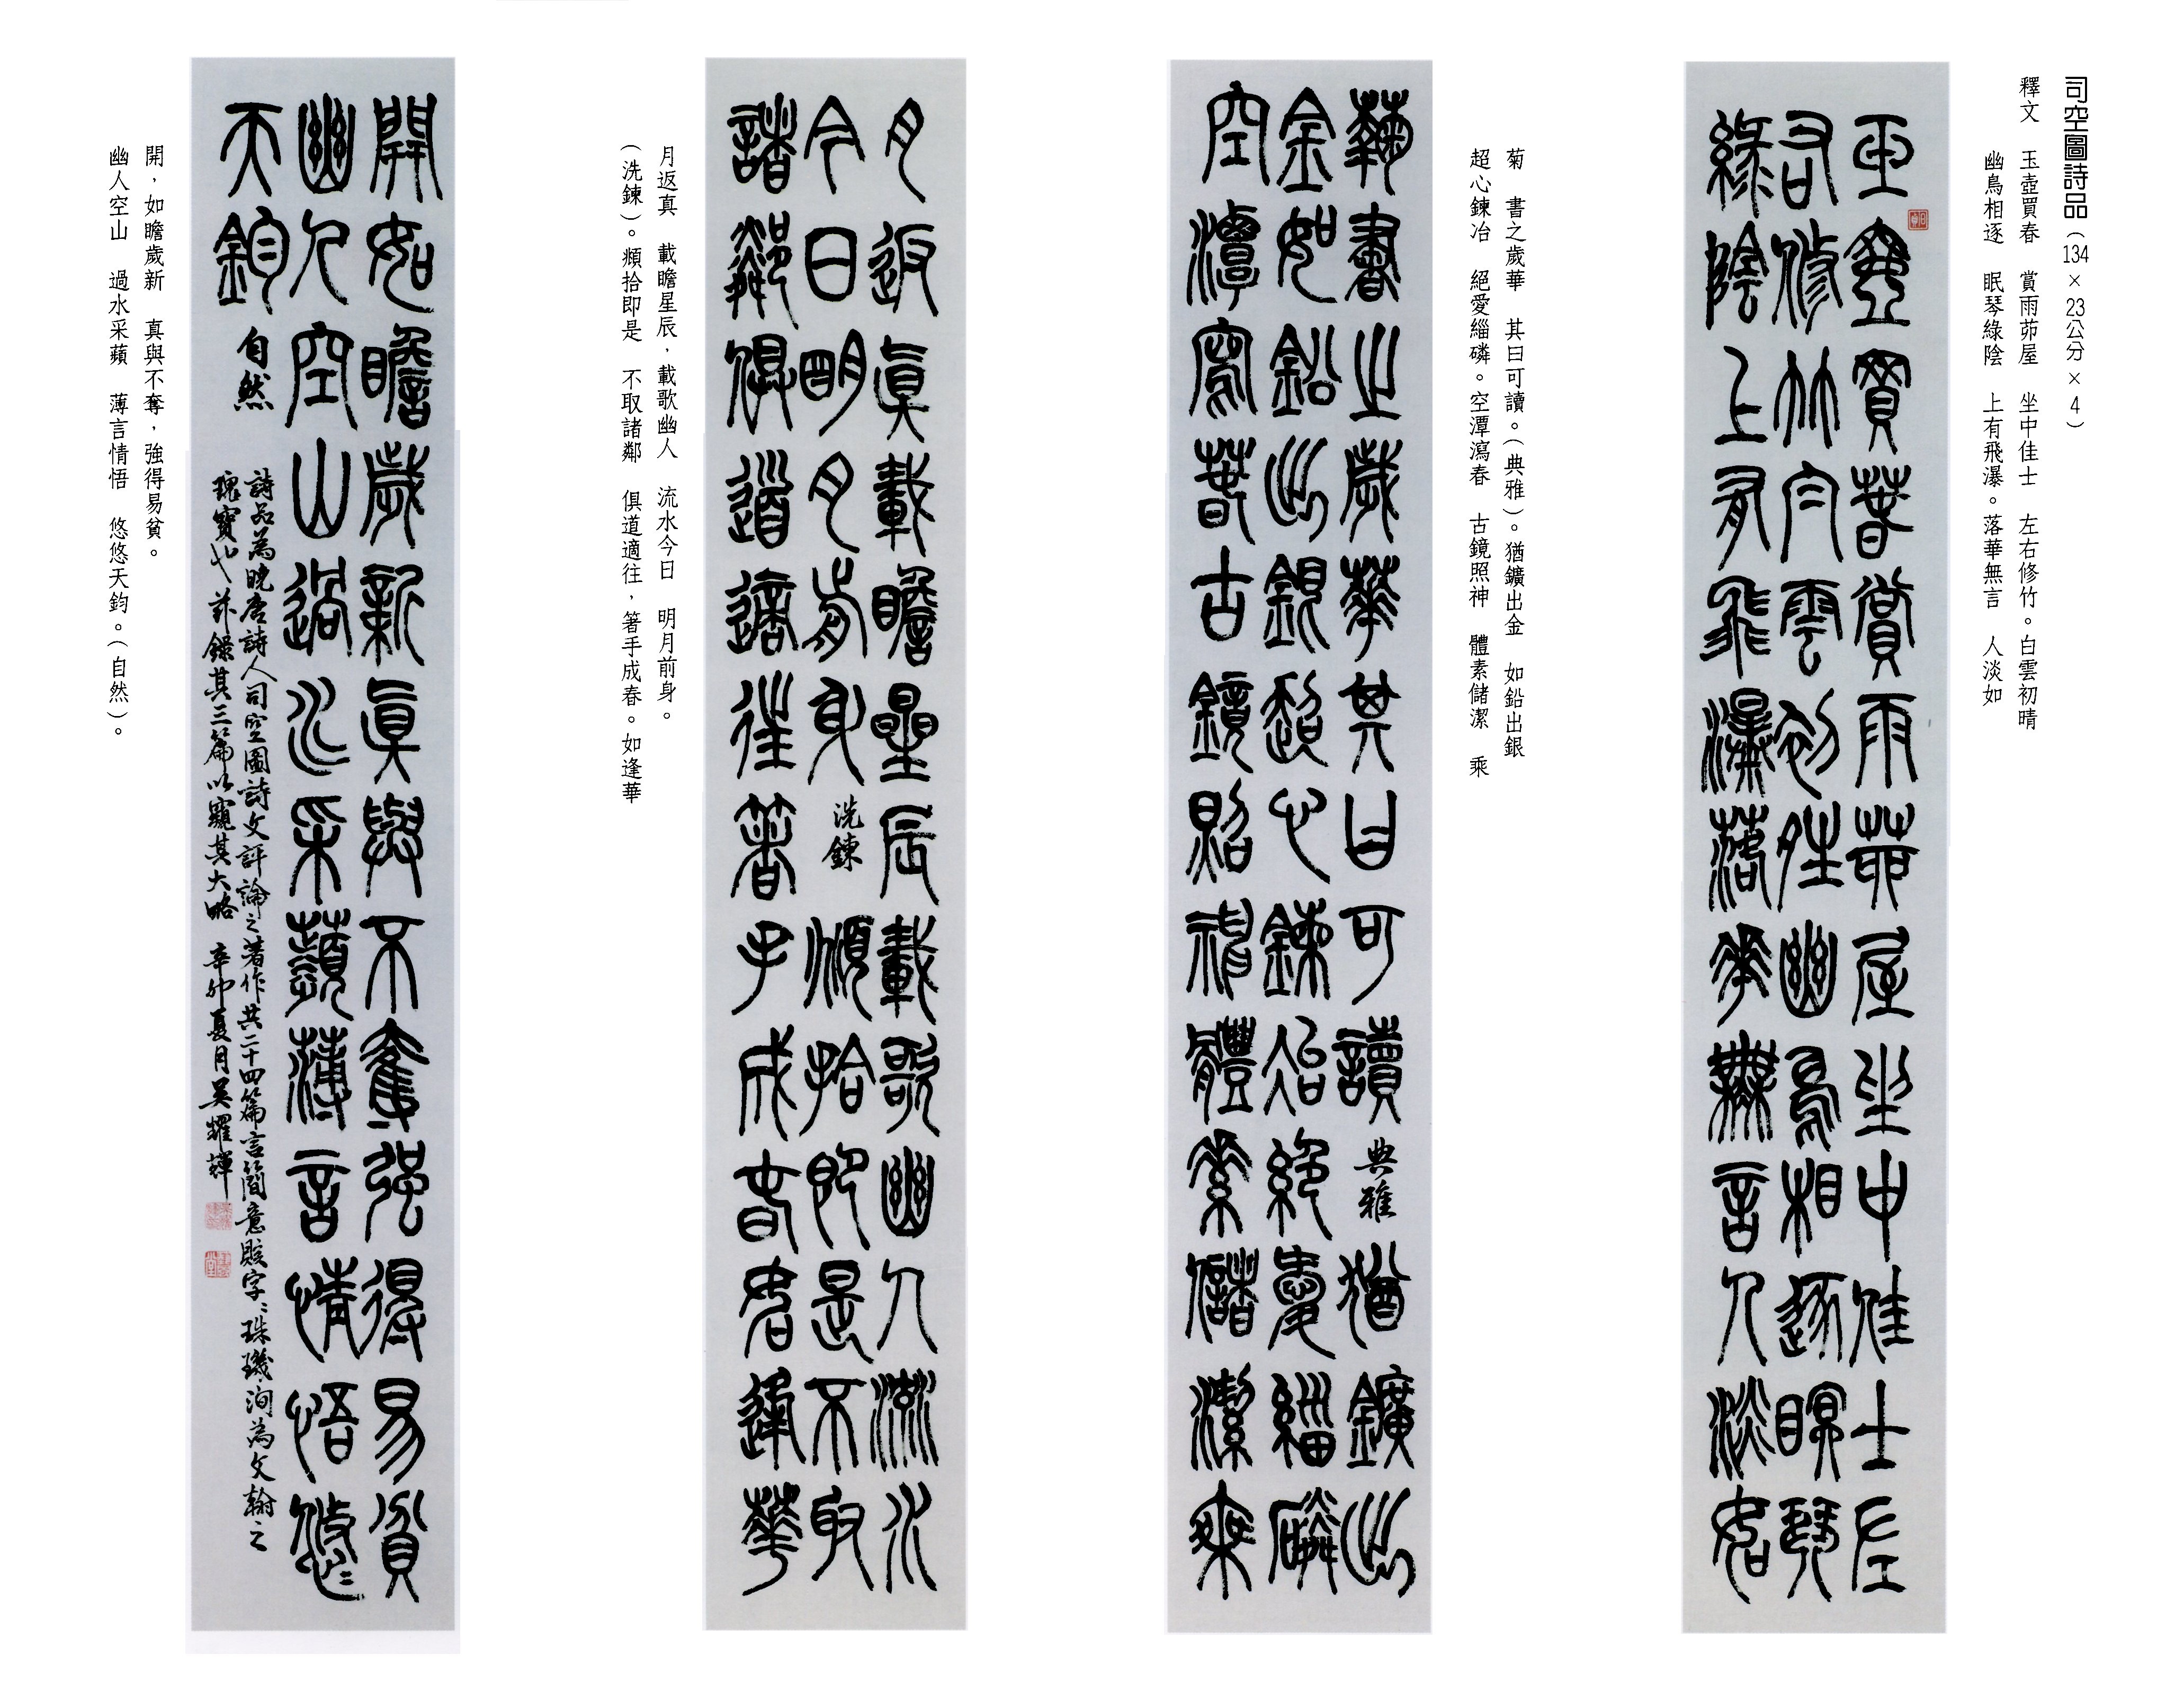 司空圖詩品(134×23公分×4)
釋文 玉壺買春 賞雨茆屋 坐中佳士 左右修竹。白雲初晴
幽鳥相逐 眠琴綠陰 上有飛瀑。落華無言 人淡如
玉壺買春賞雨茆屋坐中佳士左
右修竹白雲初晴幽鳥相逐眠琴
綠陰上有飛瀑落華無言人淡如
菊 書之歲華 其曰可讀。(典雅)。猶鑛出金 如鉛出銀
超心鍊冶 絕愛緇磷。空潭瀉春 古鏡照神 體素儲潔 乘
菊書之歲華其曰可讀 典雅 猶鑛出
金如鉛出銀超心鍊冶絕愛緇磷
空潭寫春古鏡照神體素儲潔乘
月返真載瞻星辰載歌幽人流水
今日明月前身 洗鍊 頫拾即是不取
諸鄰俱道適往箸手成春如逢華
月返真 載瞻星辰,載歌幽人 流水今日 明月前身。
(洗鍊)。頫拾即是 不取諸鄰 俱道適往,箸手成春。如逢華
開如瞻歲新真與不奪強得易貧
幽人空山過水采蘋薄言情悟悠〻
天鈞 自然
詩品為晚唐詩人司空圖詩文評論之著作共二十四篇言簡意賅字〻珠璣洵為文翰之
瑰寶也茲錄其三篇以窺其大略 辛卯夏月吳耀輝
開,如瞻歲新 真與不奪,強得易貧。
幽人空山 過水采蘋 薄言情悟 悠悠天鈞。(自然)。